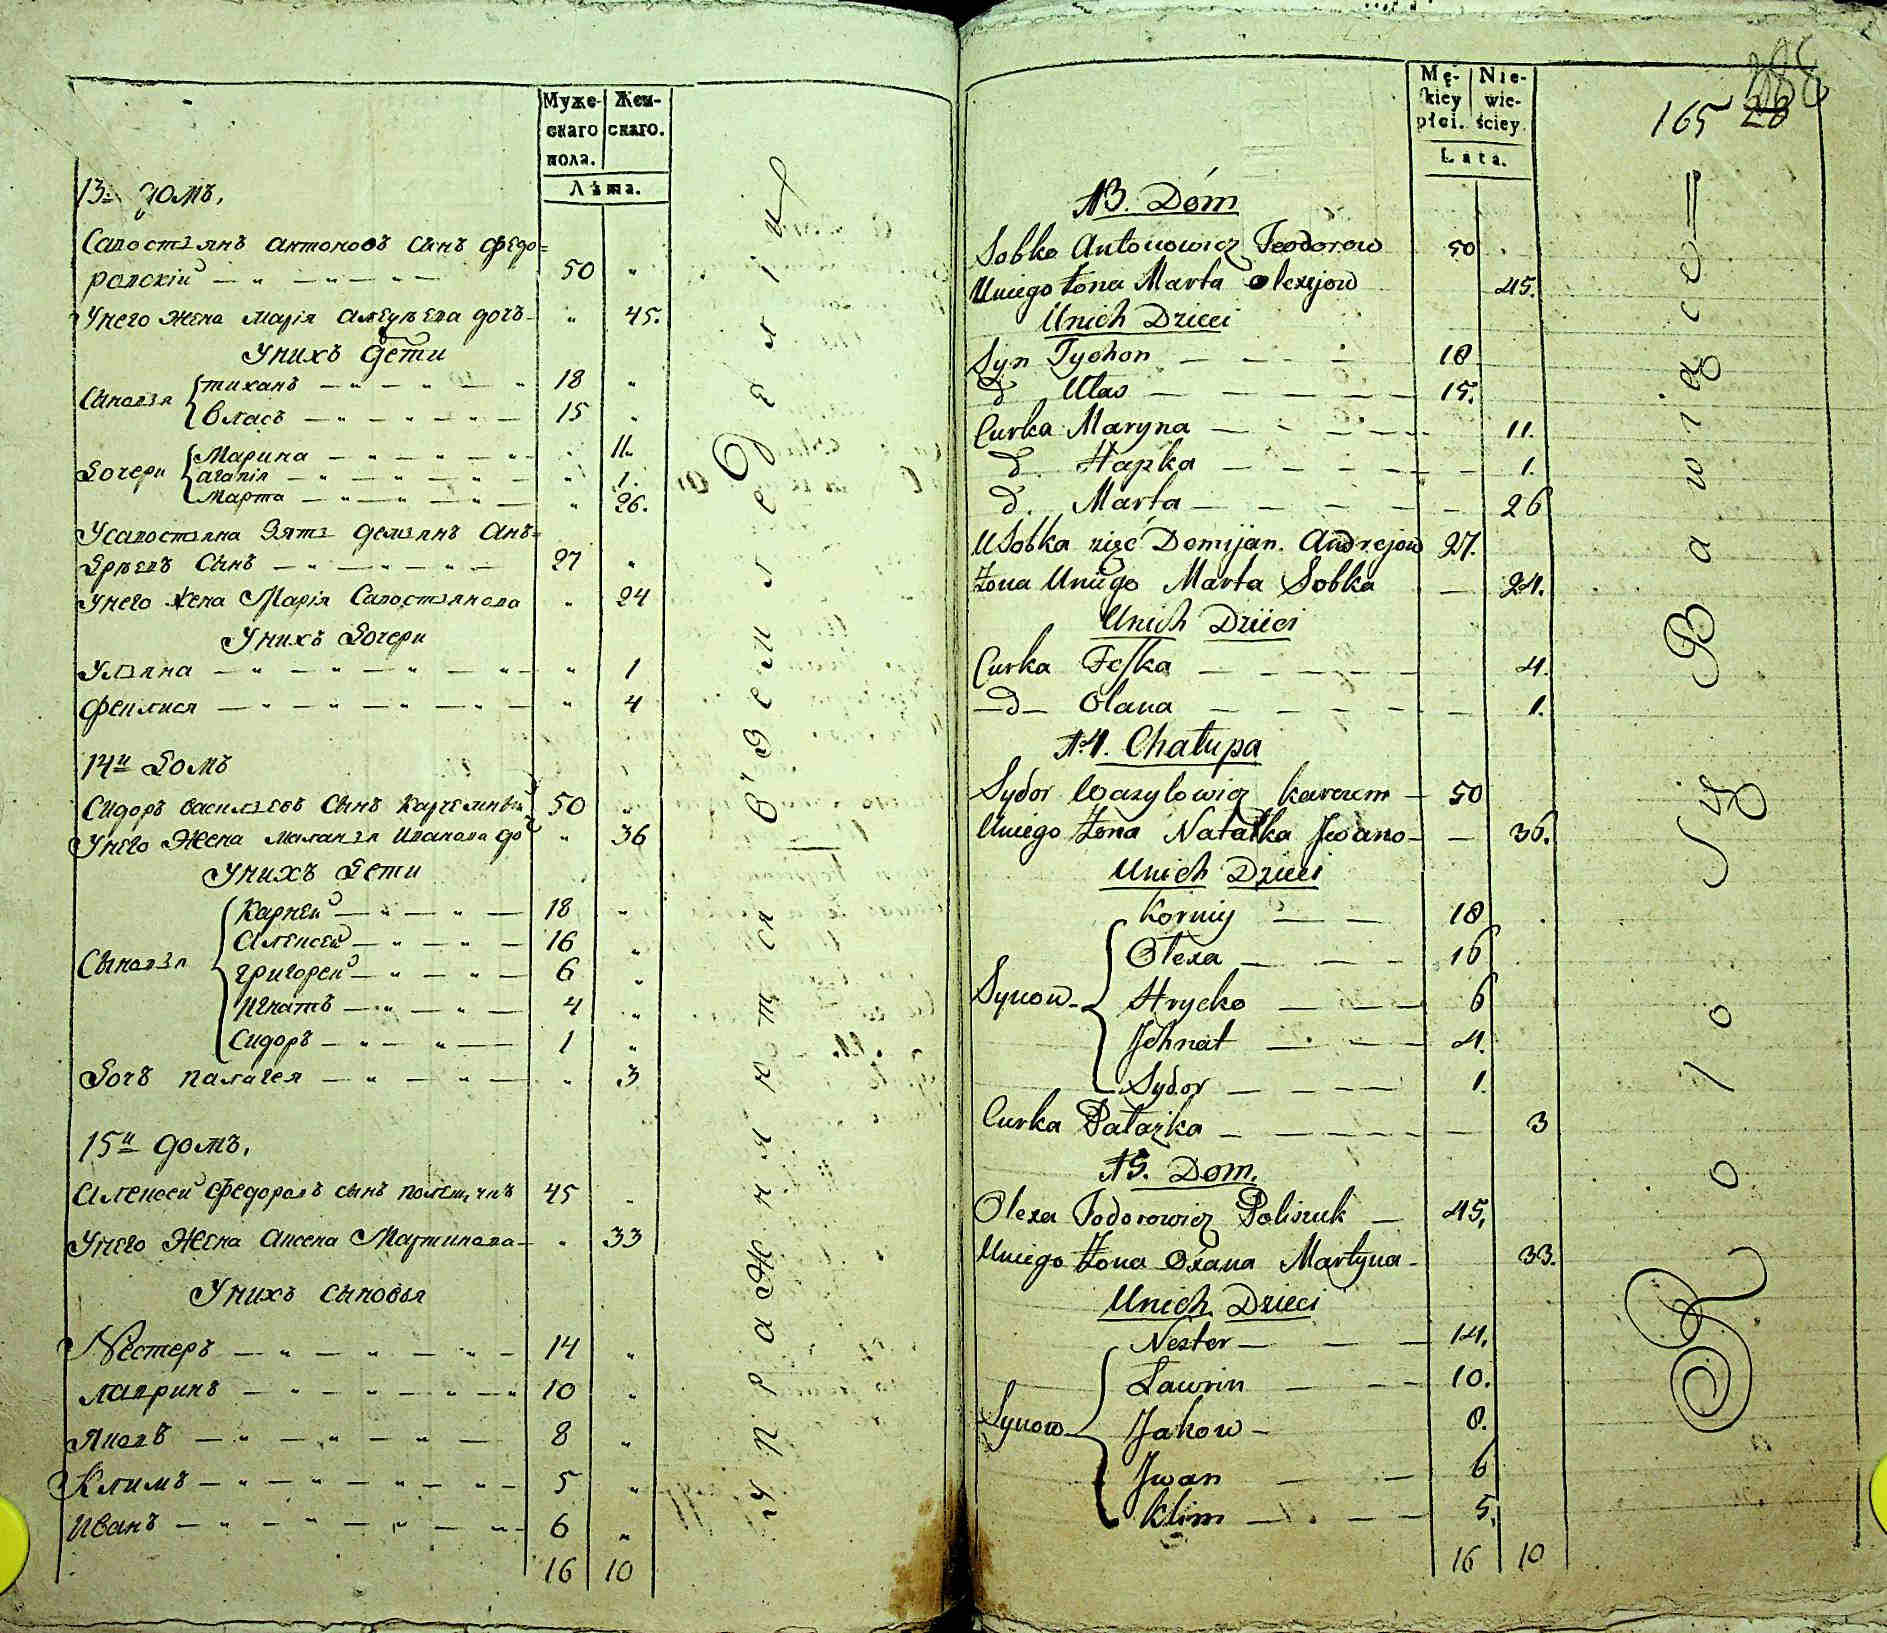 Муже- Жен-
скаго скаго.
пола.
Лѣта.
13й домъ,
Савостьянъ антоновъ сынъ федо=
ровскій — " — " — " — 50 "
Унего жена марія алеѯѣева дочъ- " 45.
Унихъ дети
Сыновья
тиханъ — " — " — " 18 "
власъ — " — " — " — 15 "
Дочери
Марина — " — " — " - " 11.
агапія — " — " — " — " 1.
Марта — " — " — " — " 26.
Усавостьяна зять демьянъ Анъ=
дрѣевъ Сынъ — " — " — " — 27 "
Унего жена Марія Савостьянова " 24
Унихъ дочери
Ульяна — " — " — " — " - " 1
феклися — " — " — " — " — " 4
14й домъ
Сидоръ васильевъ Сынъ 50 "
Унего Жена маланья иванова до " 36
Унихъ дети
Сыновья
Карней — " — " — 18 "
Алексей — " — " — 16 "
григорей — " — " — 6 "
игнатъ — " — " — 4 "
Сидоръ — " — " — 1 "
Дочъ палагея — " — " — " 3
15й домъ,
Алексей федоровъ сынъ 45 "
Унего Жена аксена Мартинова - " 33
Унихъ сыновья
Нестеръ — " — " — " — 14 "
лавринъ — " — " — " — " 10 "
Яковъ — " — " — " — 8 "
Климъ — " — " — " — " 5 "
иванъ — " — " — " — " - 6 "
16 10
упражняются въ земледелiи
Mę- Nie-
skiey wie-
płci. ściey
Lata.
165 28
13. Dóm
Sobko Antonowicz Teodorow 50
Uniego żona Marta Olexijow 45.
Unich Dzieci
Syn Tychon — — — 18
d Ułas — — — — — 15.
Curka Maryna — — — — 11.
d. Hapka — — — — — 1.
d. Marta — — — — — 26
USobka zięć Demijan. Andrejow 27.
żona Uniego Marta Sobka — 24.
Unich Dzieci
Curka Feska — — — — — 4.
—d— Olana — — — — — 1.
14. Chałupa
Sydor Wasylowicz karczm — 50
Uniego żona Natałka Jwano- — 36.
Unich Dzieci
Synow-
Korniy — — — 18
Olexa — — — 16
Hrycko — — — 6
Jhnat — — — 4.
Sydor — — — 1.
Curka Pałazka — — — — — 3
15. Dom.
Olexa Fodorowicz Poliszuk — 45,
Uniego żona Oxana Martyna- 33.
Unich Dzieci
Synow
Nester — — — 14,
Lawrin — — 10.
Jakow - 8.
Jwan — — 6
Klim — — — 5,
16 10
Rolo Się Bawiące